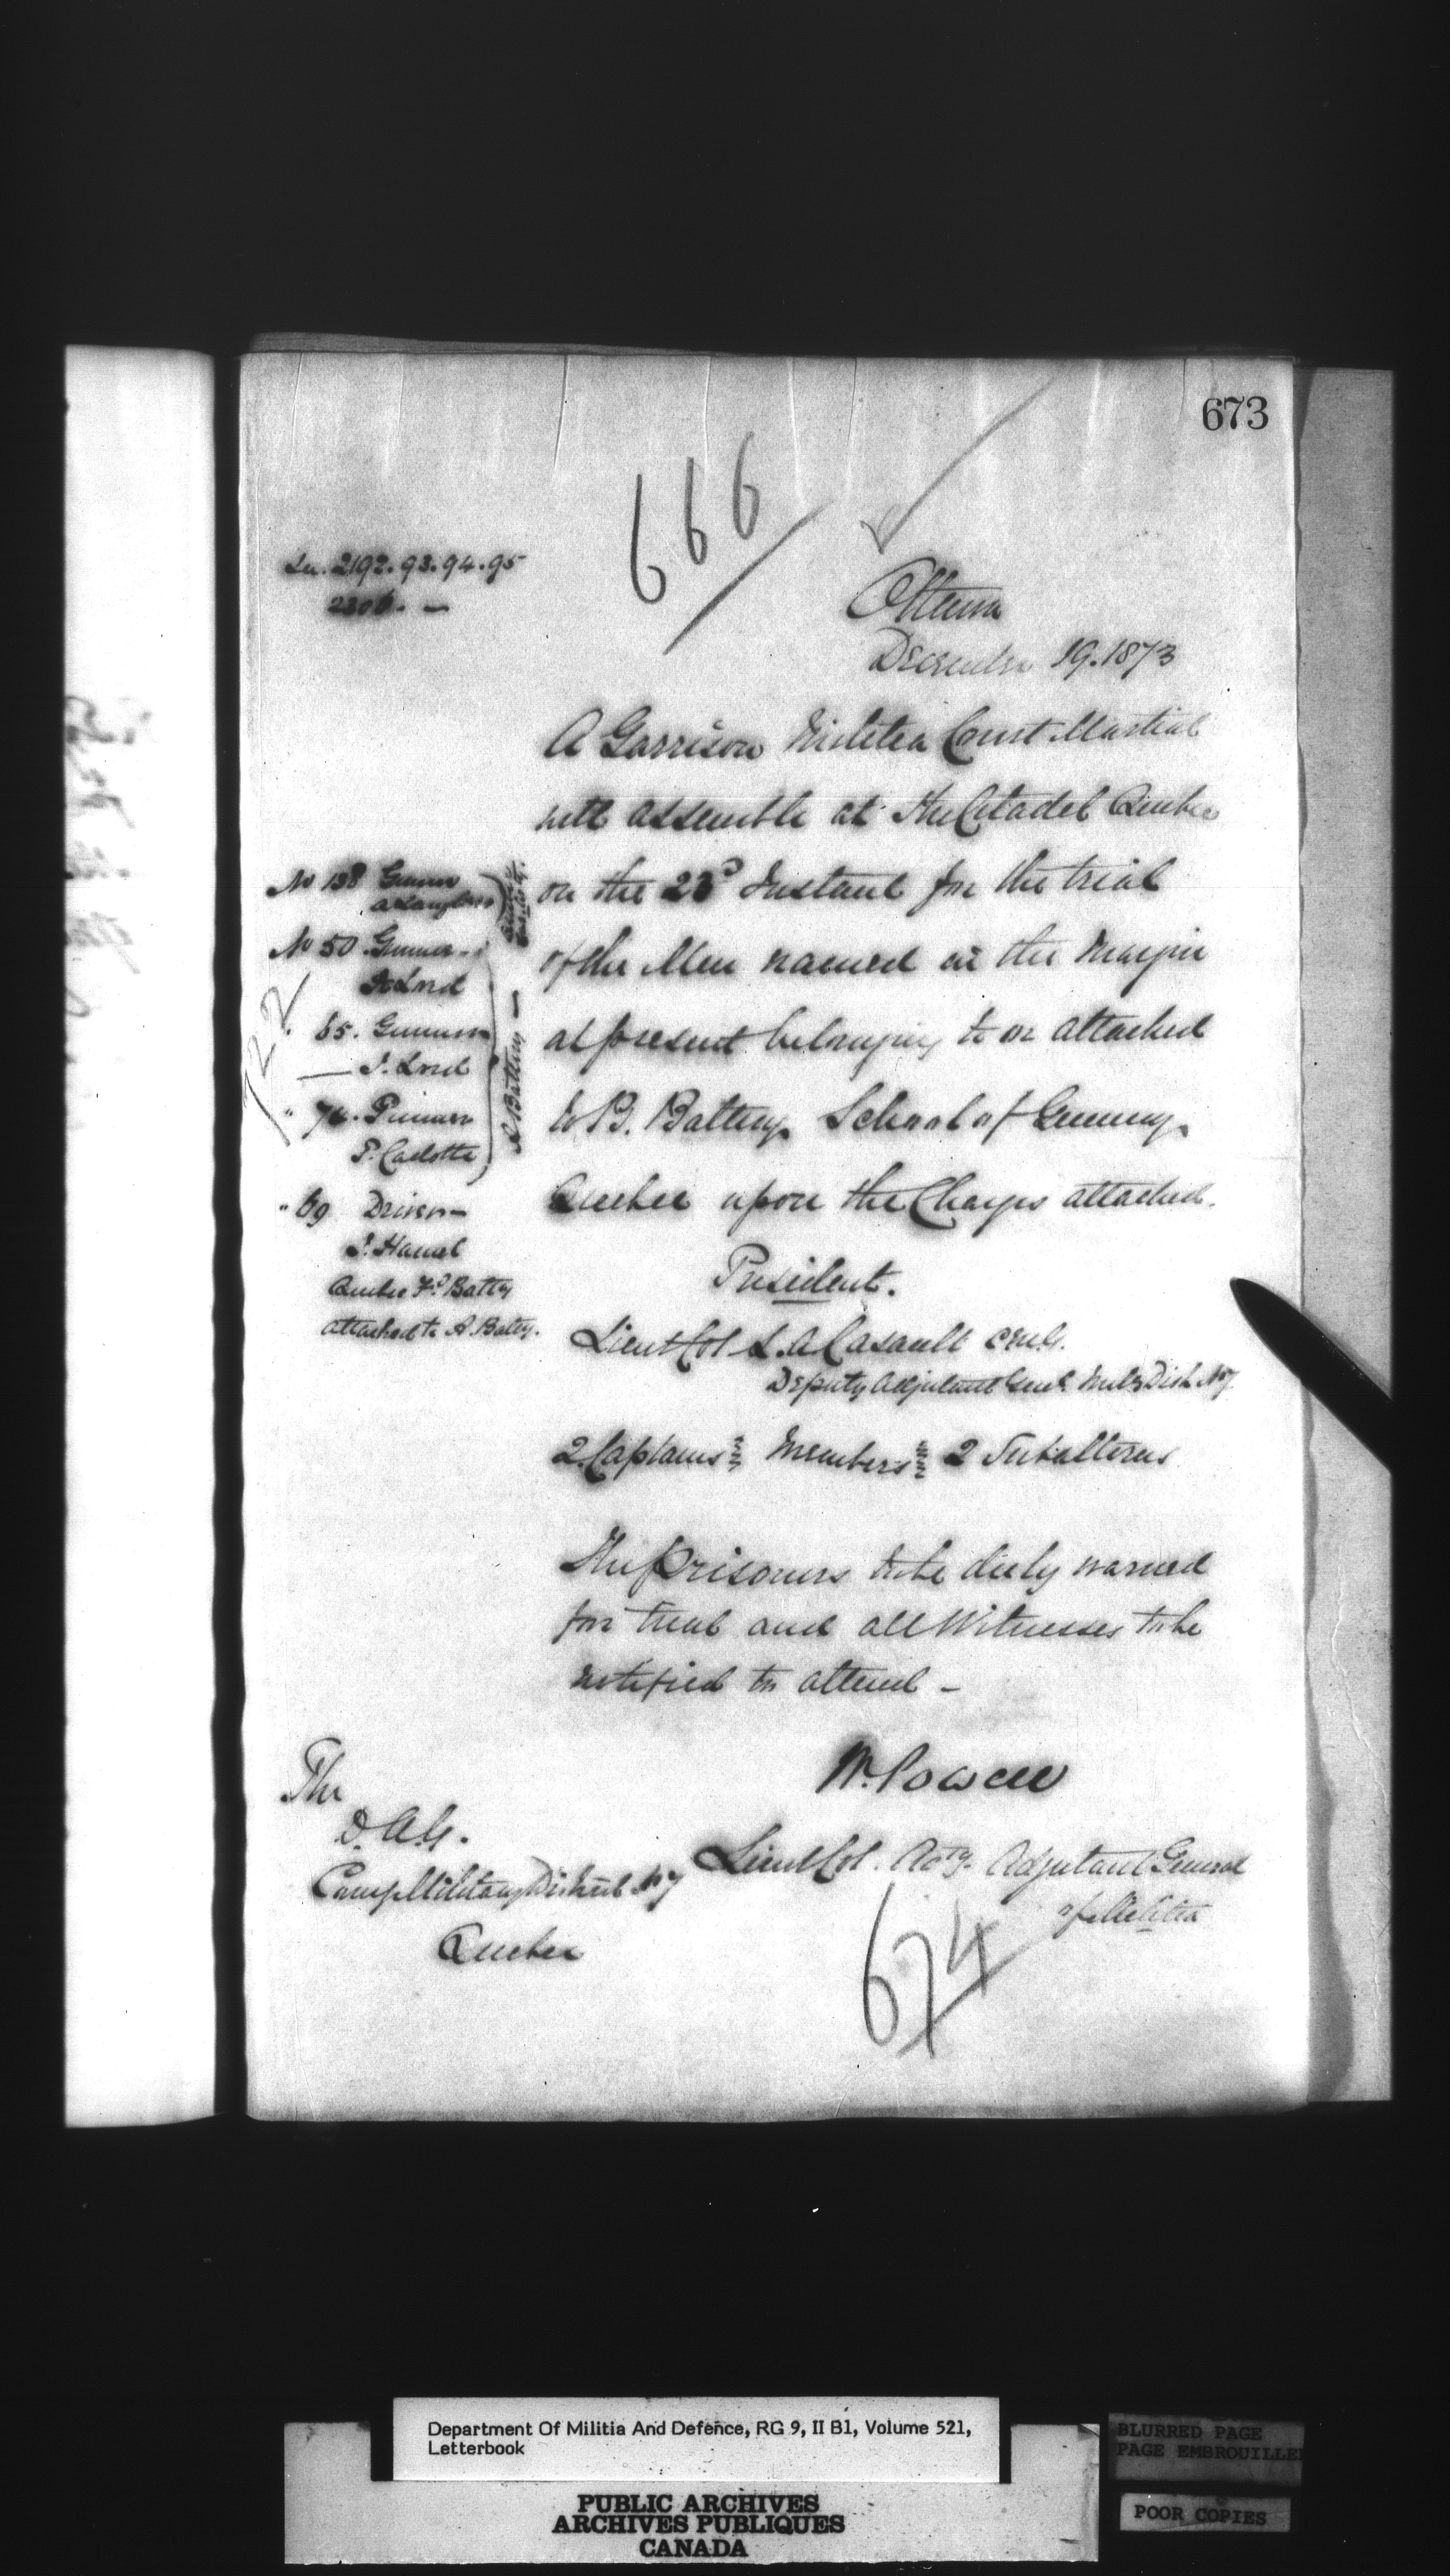 673
666
2192.93.94.95
Ottawa
December 19. 1873
A Garrison Militia Court Martial
will assemble at the Citadel Quebec
on the 23d Instant for the trial
of the Men named in the margin
at present belonging to or attached
to B. Battery School of Gunnery
Quebec upon the Charges attached.
No 138 Gunner
No 50 Gunner
Lord
65. Gunner
J. Lord
P. Cadotte
A Battery
" 69 Driver
J. Hamel
Quebec Fd. Batty
attached to A. Batty.
722
President.
Lieut Col L. A Casault CMG.
Deputy Adjutant Genl. Mily Dist. No 7
2 Captains Members 2 Subalterns
The Prisoners to be duly warned
for trial and all Witnesses to be
notified to attend -
W. Powell
Lieut Col. Actg. Adjutant General
of Militia
The
D. A. G.
Comg Military District No 7
Quebec
674
Department Of Militia And Defence, RG 9, II B1, Volume 521,
Letterbook
PUBLIC ARCHIVES
ARCHIVES PUBLIQUES
CANADA
BLURRED PAGE
PAGE EMBROUILLEE
POOR COPIES